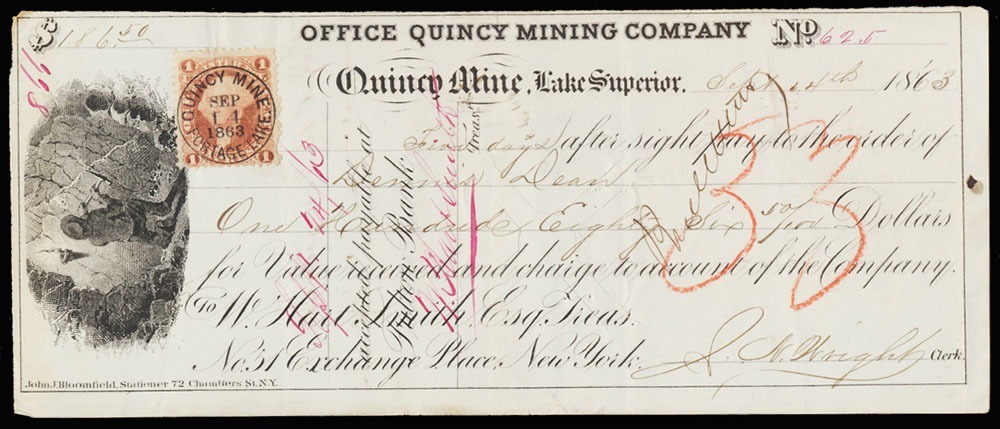 $186.50 OFFICE QUINCY MINING COMPANY No 625
Quincy Mine, Lake Superior. Sept 14th 1863
Five days after sight pay to the order of
Dennis Dean
One Hundred Eighty Six 50/100 Dollars
for Value received and charge to account of the Company.
To W. Hart Smith, Esq. Treas.
No. 31 Exchange Place, New York. J. N. Wright Clerk.
John J. Bloomfield, Stationer 72 Chambers St. N.Y.
1 1
QUINCY MINE
SEP
14
1863
PORTAGE LAKE
1 1
998
Accepted payable at
Bank
Treas.
33